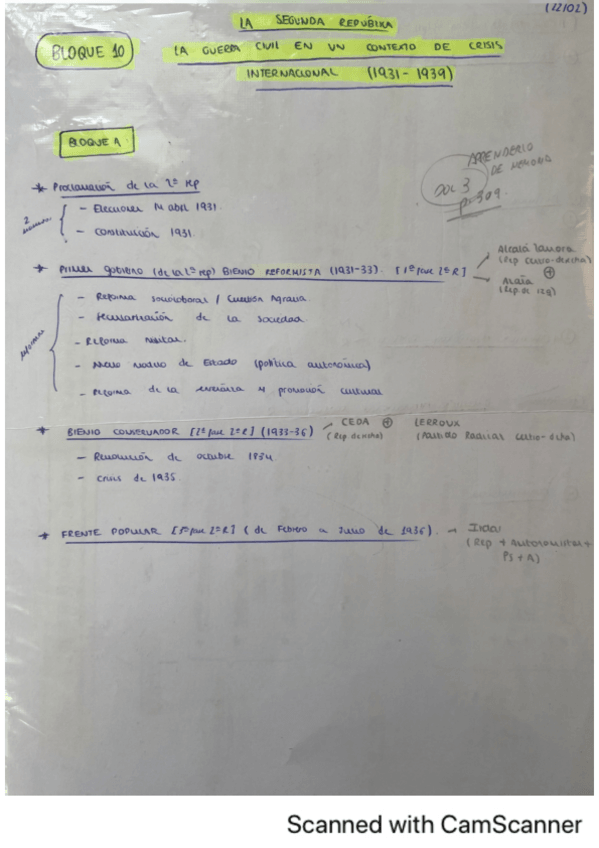 (12/02)
LA SEGUNDA REPÚBLIKA
BLOQUE 10
LA GUERRA CIVIL EN UN CONTEXTO DE CRISIS
INTERNACIONAL (1931-1939)
BLOQUE A
APRENDERLO
DE MEMORIA
DOC 3
p. 309.
* Proclamación de la 2ª rep
- Elecciones 14 abril 1931.
- Constitución 1931.
* Primer gobierno (de la 2ª rep) BIENIO REFORMISTA (1931-33). [1ª fase 2ª R]
Alcalá Zamora
(Rep centro-dexcha)
+
Azaña
(Rep de izq)
reformas
- Reforma sociolaboral / Cuestión Agraria
- Secularización de la sociedad
- Reforma militar.
- Nuevo modelo de Estado (política autonómica)
- Reforma de la enseñanza y promoción cultural
* BIENIO CONSERVADOR [2ª fase 2ª R] (1933-36)
CEDA + LERROUX
(Rep dexcha) (Partido Radical centro-dcha)
- Revolución de octubre 1934.
- Crisis de 1935
* FRENTE POPULAR [3ª fase 2ª R] (de Febrero a Junio de 1936). →
(Rep + Autonomistas +
PS + A)
Scanned with CamScanner